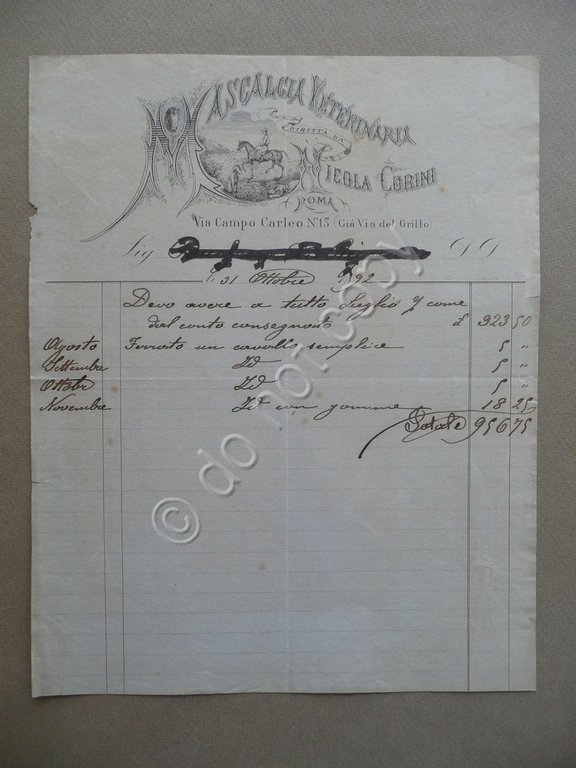 MASCALCIA VETERINARIA
DIRETTA DA
NICOLA CORINI
ROMA
Via Campo Carleo N° 13 (Già Via del Grillo)
Sig. DD
31 Ottobre 92
Devo avere a tutto Luglio come
dal conto consegnato £ 923 50
Agosto Ferrato un cavallo semplice 5 "
Settembre Id 5 "
Ottobre Id 5 "
Novembre Id con gomme 18 25
Totale 956 75
© do not copy